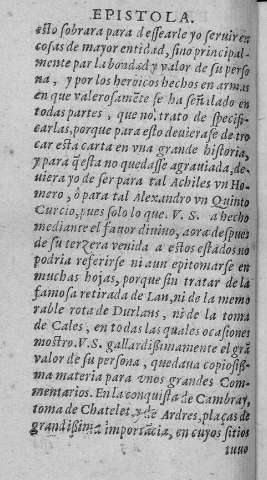 EPISTOLA.
esto sobrara para dessearle yo seruir en
cosas de mayor entidad, sino principal-
mente par la bondad y valor de su perso
na, y por los heroicos hechos en armas
en que valerosamẽte se ha señalado en
todas partes, que no, trato de specifi-
carlas, porque para esto deuierase de tro
car esta carta en vna grande historia,
y para q̃ esta no quedasse agrauiada, de-
uiera yo de ser para tal Achiles vn Ho-
mero, ò para tal Alexandro vn Quinto
Curcio, pues solo lo que. V. S. a hecho
mediante el fauor diuino, aora despues
de su terzera venida a estos estados no
podria referirse ni aun epitomarse en
muchas hojas, porque sin tratar de la
famosa retirada de Lan, ni de la memo
rable rota de Durlans, ni de la toma
de Cales, en todas las quales ocasiones
mostro. V. S. gallardissimamente el grã
valor de su persona, quedaua copiosiss-
ma materia para vnos grandes Com-
mentarios. En la conquista de Cambray,
toma de Chatelet, y de Ardres, plaças de
grandissima importãcia, en cuyos sitios
tuuo